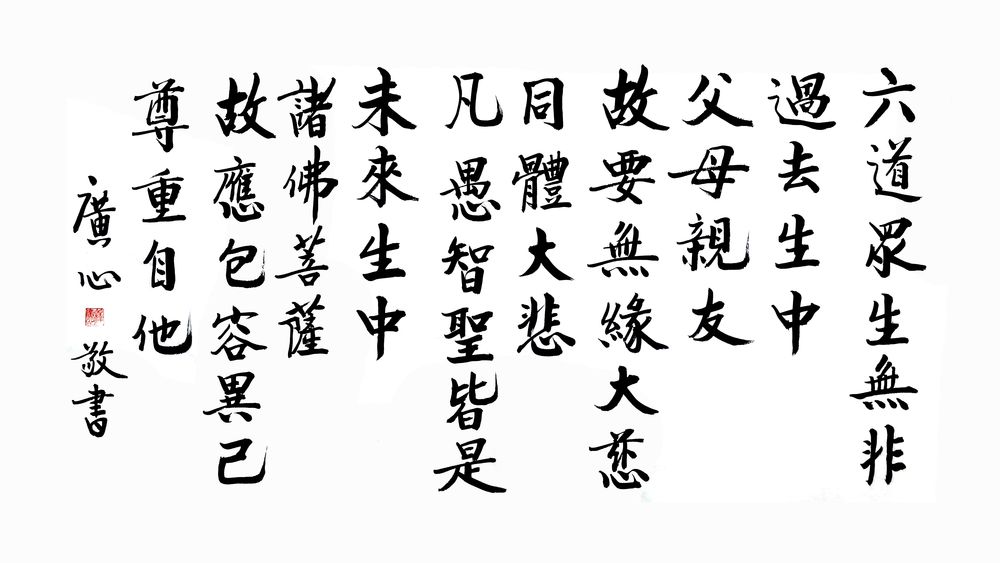 六道眾生無非
過去生中
父母親友
故要無緣大慈
同體大悲
凡愚智聖皆是
未來生中
諸佛菩薩
故應包容異己
尊重自他
廣心
敬書